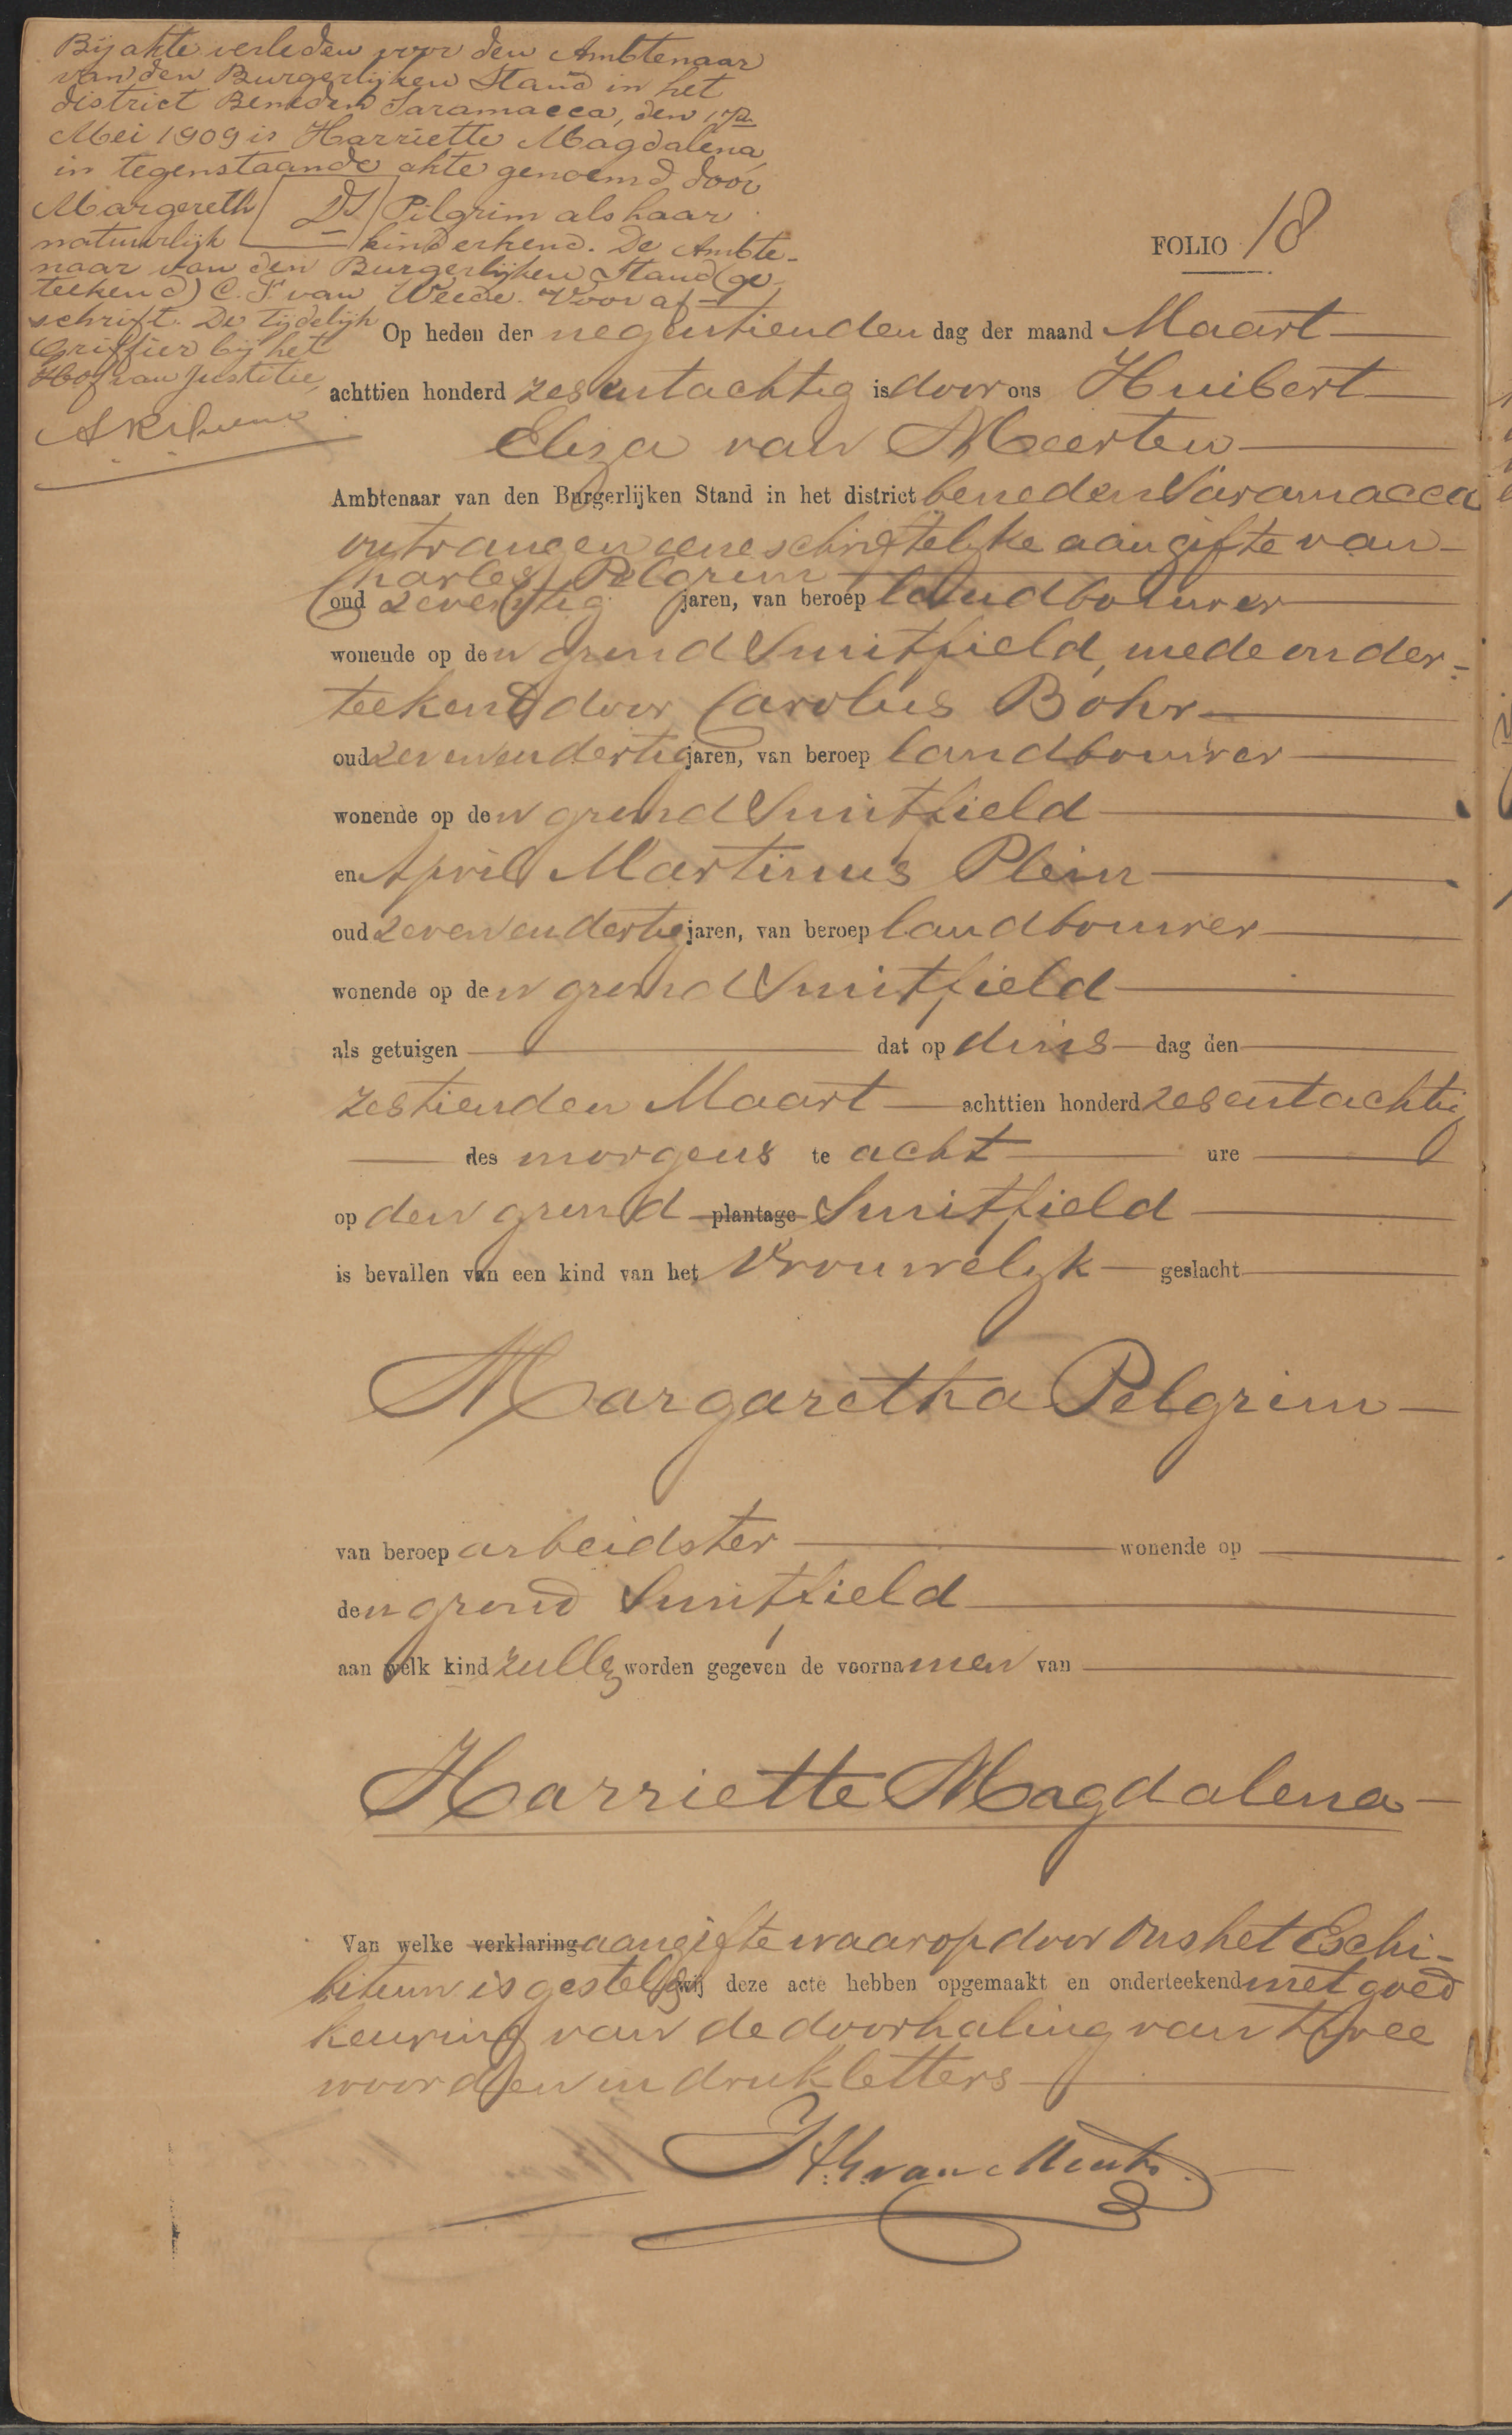 Bij akte verleden voor den Ambtenaar
van den Burgerlijken Stand in het
district Beneden Saramacca, den 17n
Mei 1909 is Harriette Magdalena
in tegenstaande akte genoemd door
Margereth Pilgrim als haar
natuurlijk kind erkend. De Ambte-
naar van den Burgerlijken Stand (ge-
teekend) C. F. van Weede. Voor af-
schrift. De tijdelijk
Griffier bij het
Hof van Justitie,
FOLIO 18
Op heden den negentienden dag der maand Maart
achttien honderd zesentachtig is door ons Huibert
Eliza van Meerten
Ambtenaar van den Burgerlijken Stand in het district beneden Saramacca
ontvangen eene schriftelijke aangifte van
Charles Pelgrim
oud zeventig jaren, van beroep landbouwer
wonende op den grond Smitfield, mede onder-
teekend door Carolus Bohr
oud zevenendertig jaren, van beroep landbouwer
wonende op den grond Smitfield
en April Martinus Plein
oud zevenendertig jaren, van beroep landbouwer
wonende op den grond Smitfield
als getuigen dat op dins dag den
zestienden Maart achttien honderd zesentachtig
des morgens te acht ure
op den grond plantage Smitfield
is bevallen van een kind van het vrouwelijk geslacht
Margaretha Pelgrim
van beroep arbeidster wonende op
den grond Smitfield
aan welk kind zullen worden gegeven de voornamen van
Harriette Magdalena
Van welke verklaring aangifte waarop door ons het Exhi-
bitum is gesteld wij deze acte hebben opgemaakt en onderteekend met goed
keuring van de doorhaling van twee
woorden in drukletters